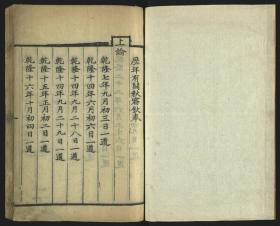 歷年有關秋審欽奉
上諭
乾隆七年九月初三日一道
乾隆十四年六月初六日一道
乾隆十四年九月二十八日一道
乾隆十四年九月二十九日一道
乾隆十五年正月初二日一道
乾隆十六年十月初四日一道